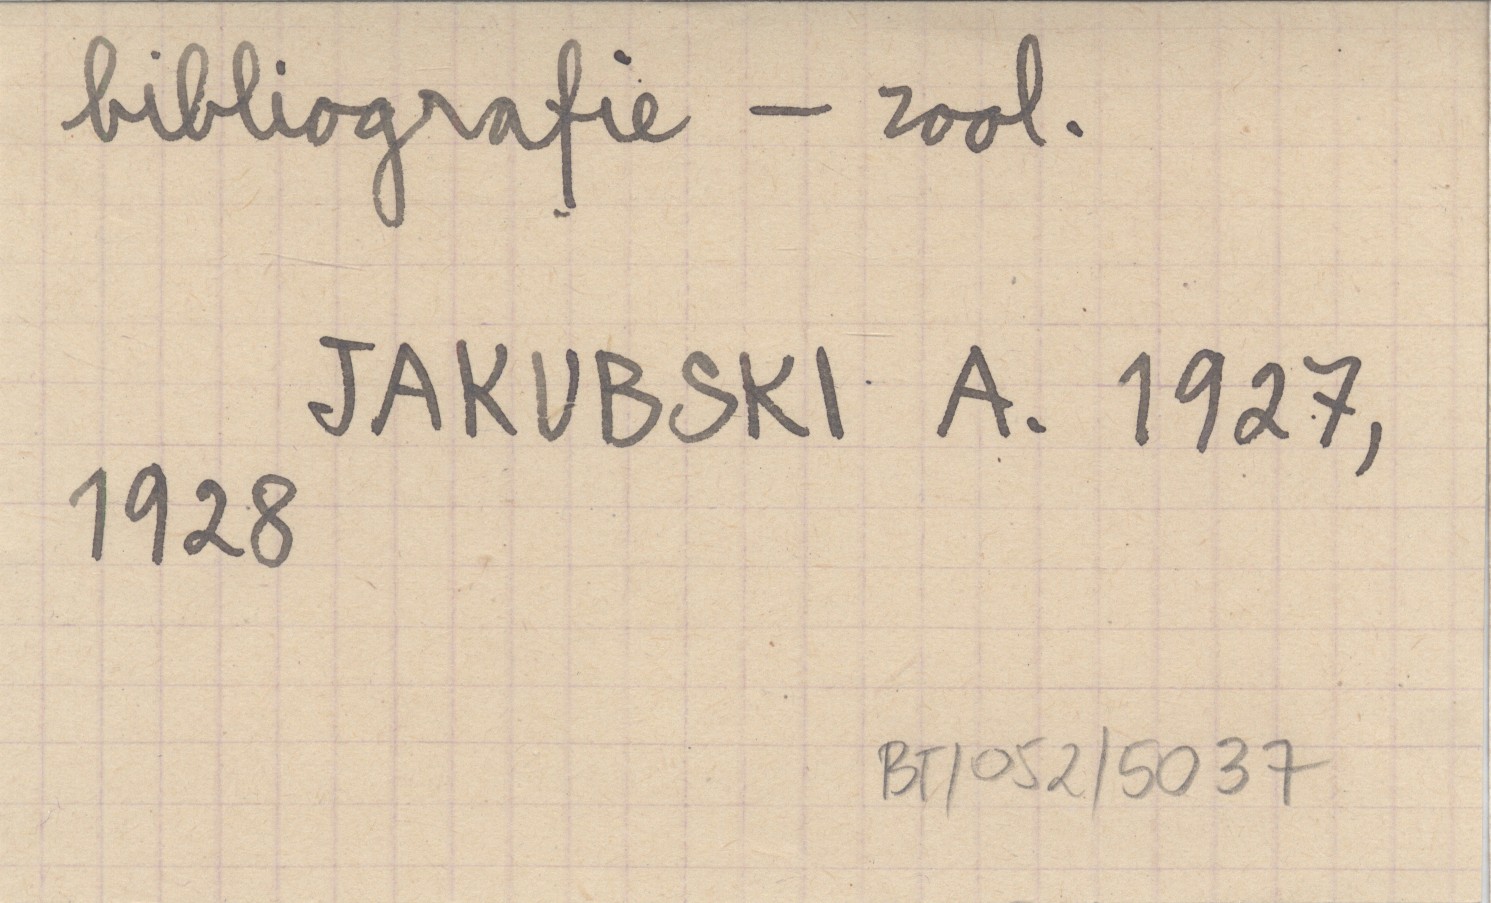 bibliografie – zool.
JAKUBSKI A. 1927,
1928
BT/052/5037